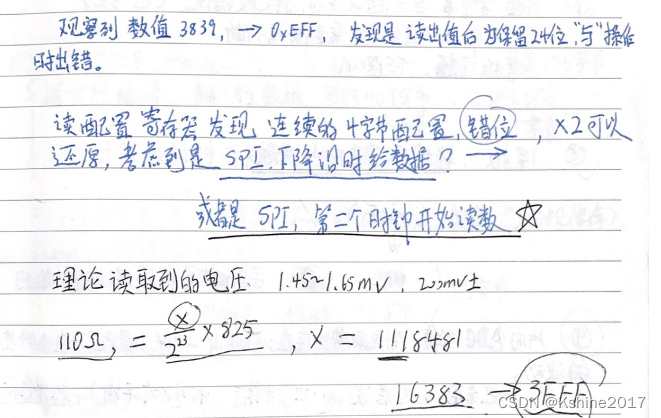 观察到 数值 3839, → 0xEFF, 发现是 读出值后 为保留24位 "与" 操作
时出错。
读配置 寄存器 发现 连续的 4字节配置, 错位, ×2 可以
还原, 考虑到是 SPI, 下降沿时给数据? →
或者是 SPI, 第二个时钟开始读数 ☆
理论读取到的电压 1.45~1.65mV, 200mV±
110Ω, = X/2^23 × 825, X = 1118481
16383 → 3FFF
CSDN @Kshine2017